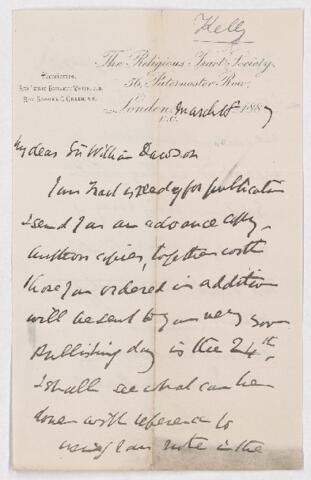 Kelly
The Religious Tract Society,
56, Paternoster Row,
Secretaries.
London, March 18 1887
E.C.
My dear Sir William Dawson
Your Tract is ready for publication
I send you an advance copy.
Authors copies, together with
those you ordered in addition
will be sent to you very soon
Publishing day is the 24th.
I shall see what can be
done with reference to
using your note in the